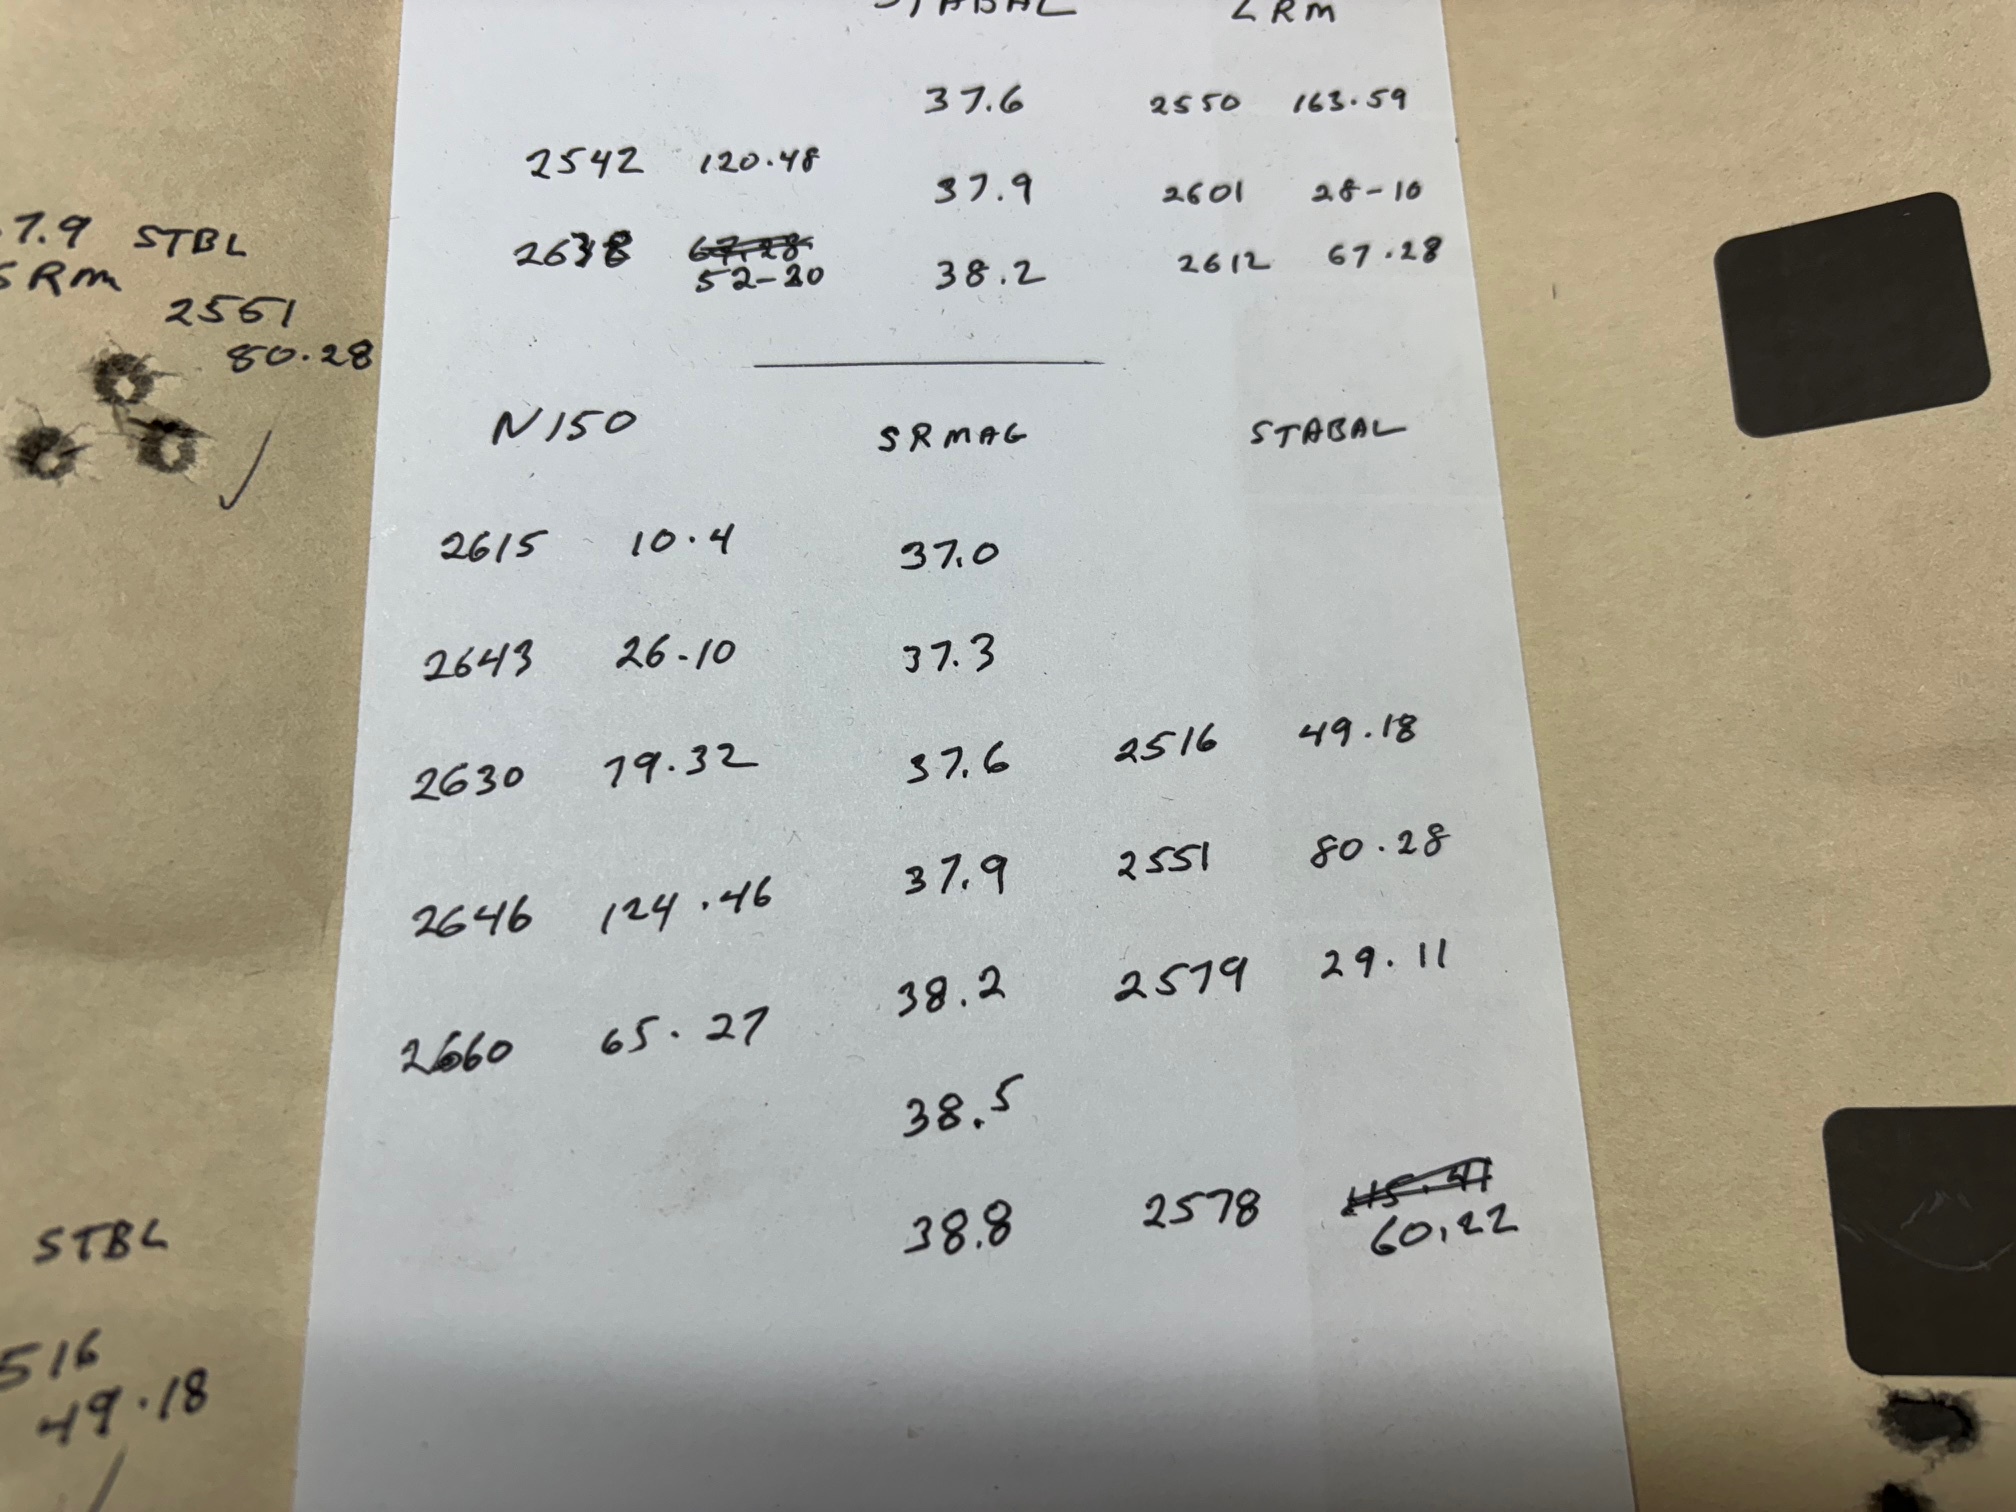 STABAL LRM
37.6 2550 163.59
2542 120.48 37.9 2601 28-10
67.28
52-20 38.2 2612 67.28
7.9 STBL
SRM
2551
80.28
N150 SRMAG STABAL
2615 10.4 37.0
2643 26.10 37.3
2630 79.32 37.6 2516 49.18
2646 124.46 37.9 2551 80.28
2660 65.27 38.2 2579 29.11
38.5
38.8 2578 115.41
60.22
STBL
516
49.18